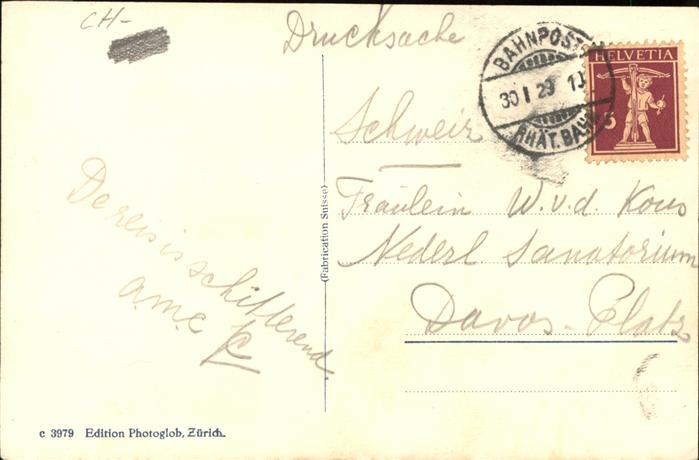 CH-
Drucksache
BAHNPOST
30 I 29 10
RHÄT. BAHN
HELVETIA
5
Schweiz
Fräulein W. v. d. Kous
Nederl Sanatorium
Davos-Platz
De reis is schitterend.
a.m.c.
(Fabrication Suisse)
c 3979 Edition Photoglob, Zürich.